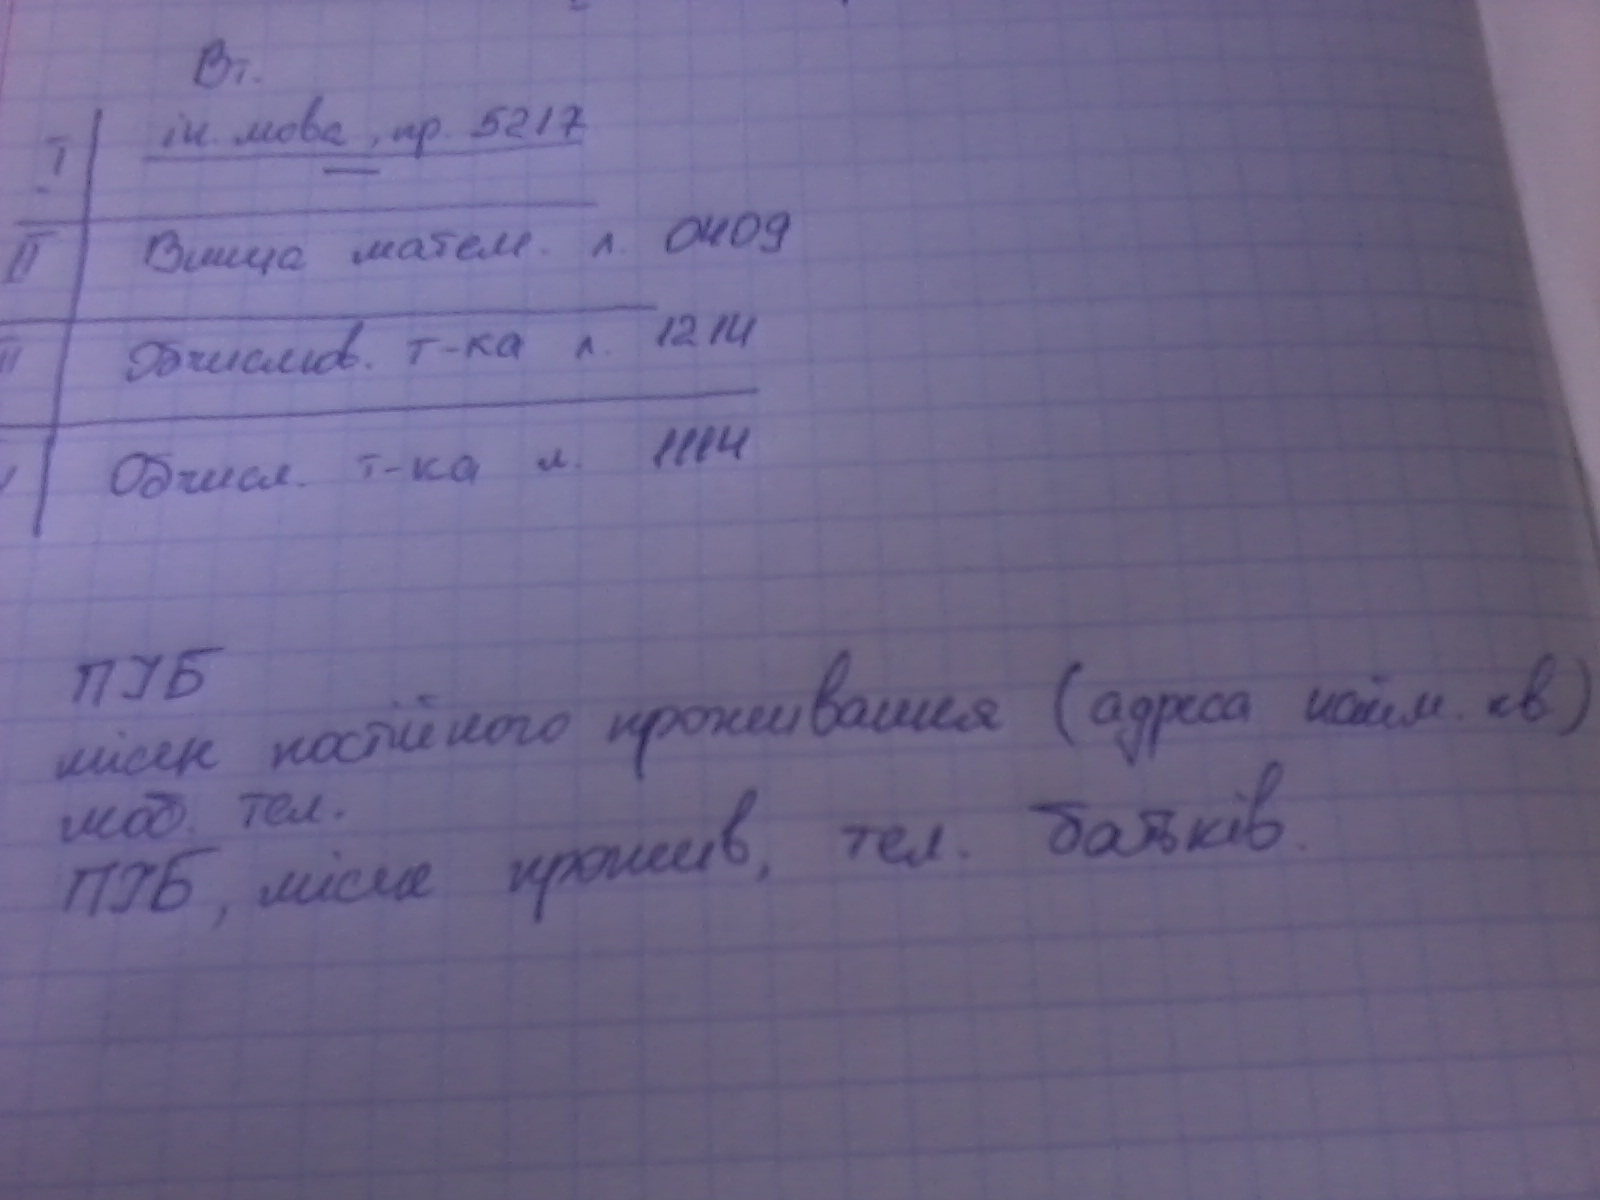 Вт.
I ін. мова, пр. 5217
II Вища матем. л. 0409
II Обчислюв. т-ка л. 1214
Обчисл. т-ка л. 1114
ПІБ
місце постійного проживання (адреса найм. кв)
моб. тел.
ПІБ, місце прожив, тел. батьків.